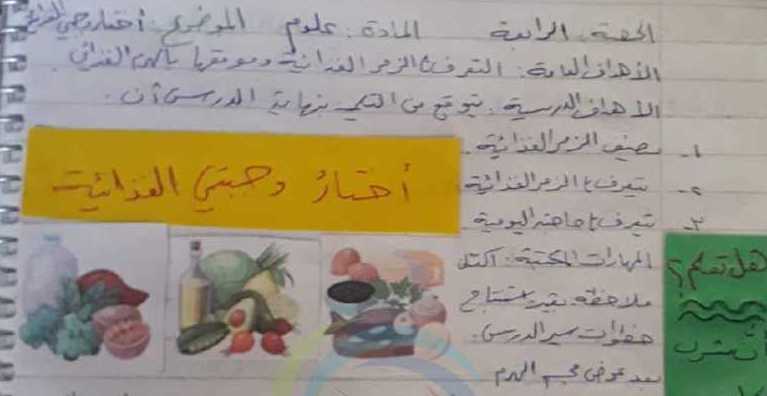 الحصة: الرابعة المادة: علوم الموضوع: أختار وجبتي الغذائية
الأهداف العامة: التعرف على الزمر الغذائية وموقعها بالهرم الغذائي
الأهداف الدرسية: يتوقع من التلميذ بنهاية الدرس أن:
١- يصنف الزمر الغذائية.
٢- يتعرف على الزمر الغذائية
٣- يتعرف على حاجته اليومية
أختارُ وجبتي الغذائية
المهارات المكتسبة: اكتشاف
ملاحظة. استنتاج
خطوات سير الدرس:
بعد عرض مجسم الهرم
هل تعلم؟
أن شرب